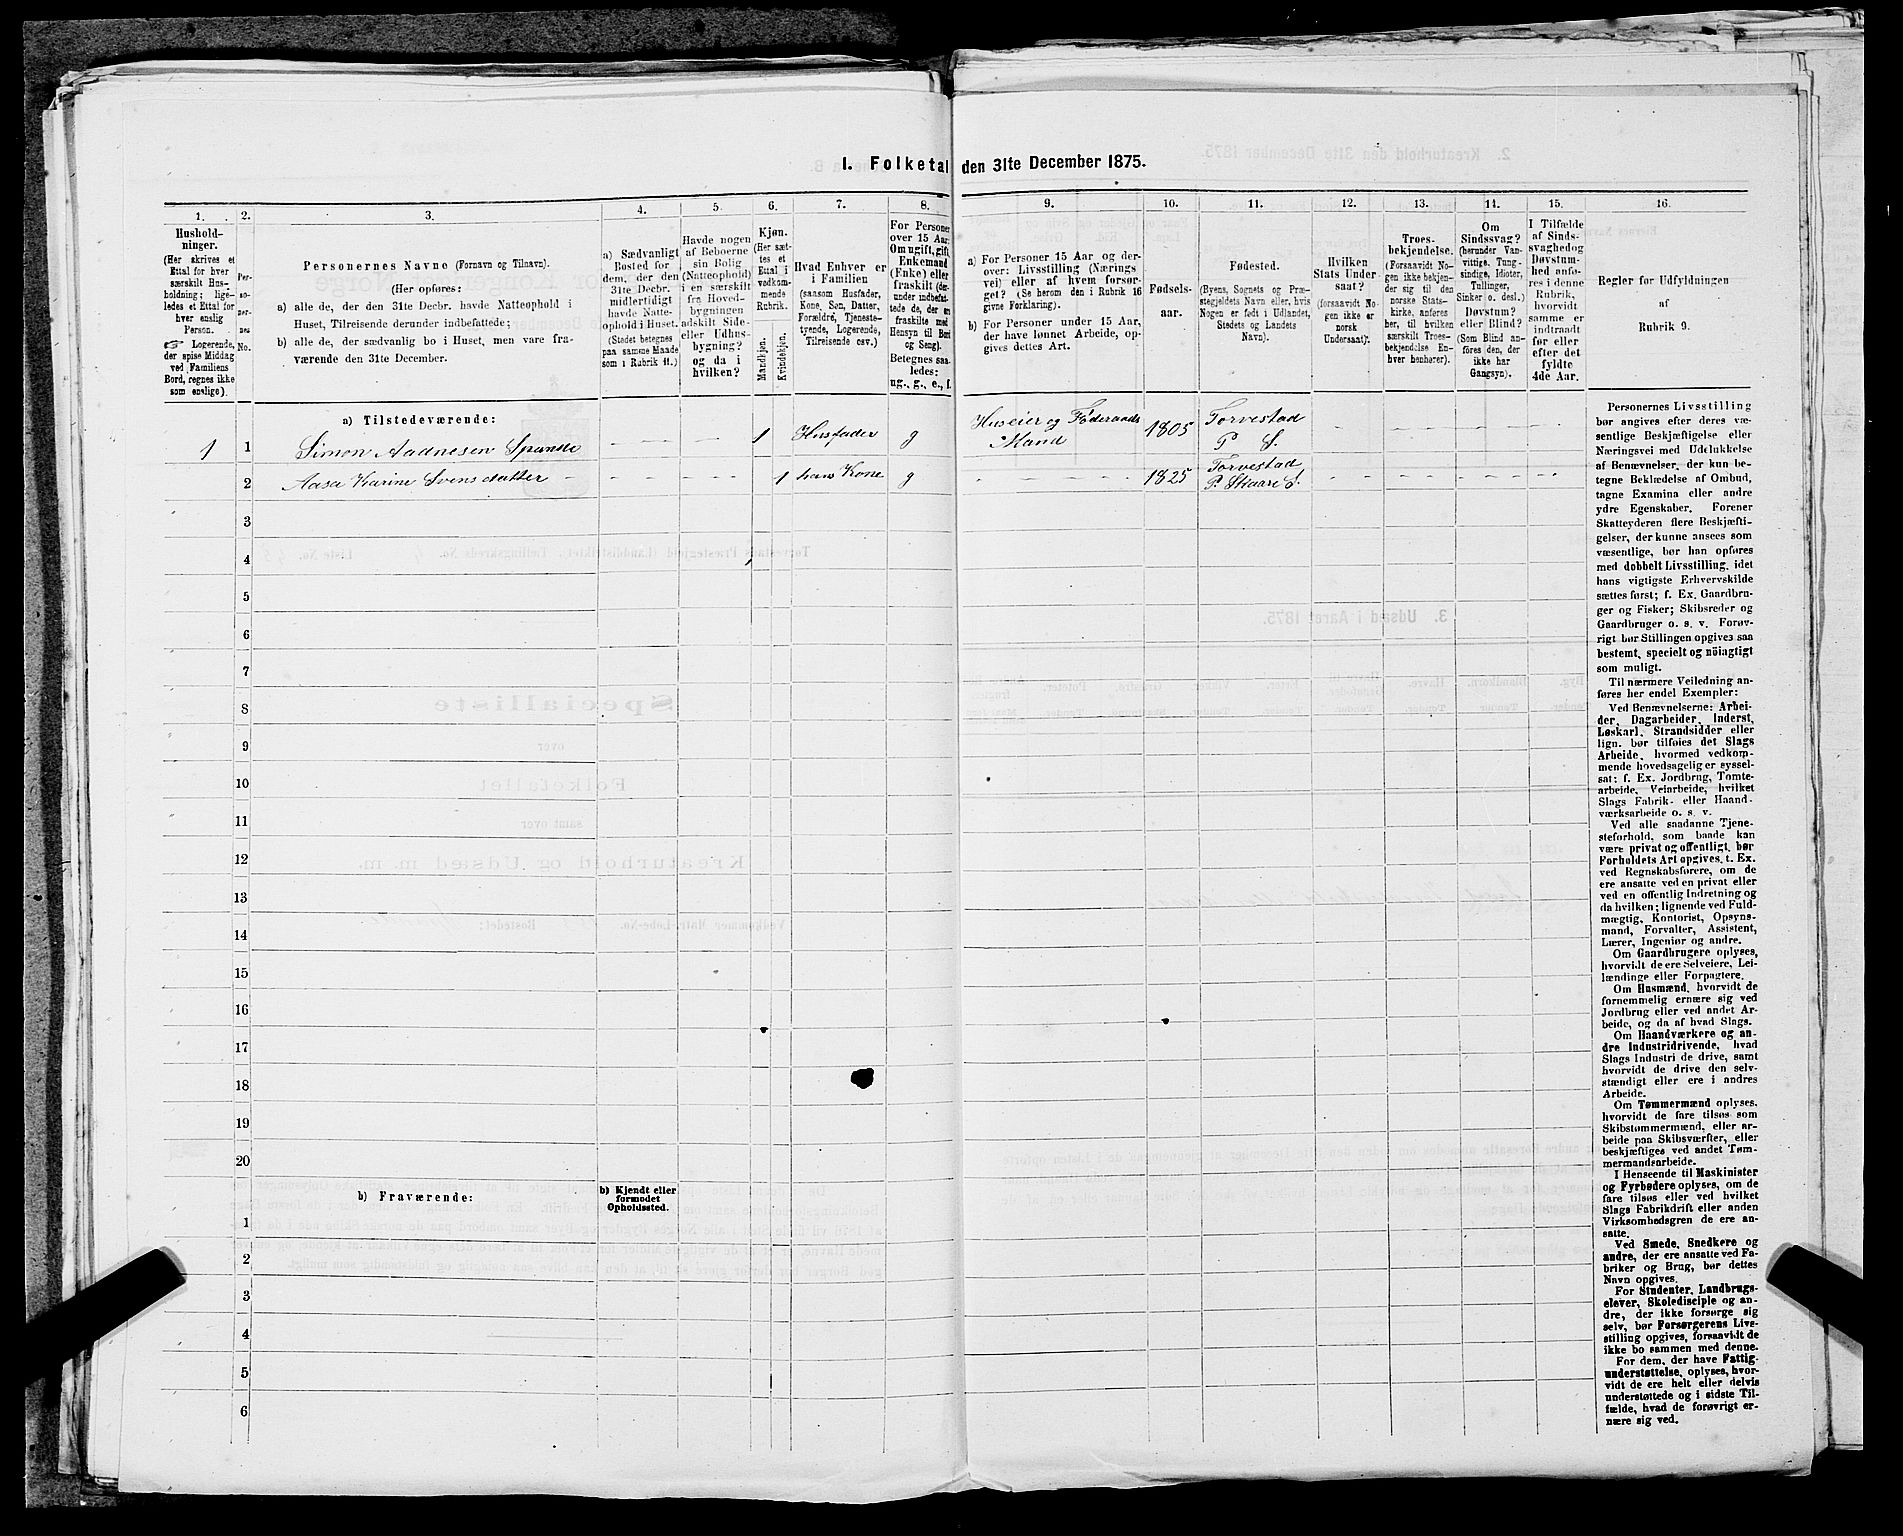 I. Folketal den 31te December 1875.
1.
2.
3.
4.
5.
6.
7.
8.
9.
10.
11.
12.
13.
14.
15.
16.
Hushold-
ninger.
(Her skrives et
Ettal for hver
særskilt Hus-
holdning; lige-
ledes et Ettal for
hver enslig
Person.
☞ Logerende,
der spise Middag
ved Familiens
Bord, regnes ikke
som enslige).
Per-
so-
ner-
nes
No.
Personernes Navne (Fornavn og Tilnavn).
(Her opføres:
a) alle de, der den 31te Decbr. havde Natteophold i
Huset, Tilreisende derunder indbefattede;
b) alle de, der sædvanlig bo i Huset, men vare fra-
værende den 31te December.
a) Sædvanligt
Bosted for
dem, der den
31te Decbr.
midlertidigt
havde Natte-
ophold i Huset.
(Stedet betegnes
paa samme Maade
som i Rubrik 11.)
Havde nogen
af Beboerne
sin Bolig
(Natteophold)
i en særskilt
fra Hoved-
bygningen
adskilt Side-
eller Udhus-
bygning?
og da i
hvilken?
Kjøn.
(Her sæt-
tes et
Ettal i
vedkom-
mende
Rubrik.
Mandkjøn.
Kvindekjøn.
Hvad Enhver er
i Familien
(saasom Husfader,
Kone, Søn, Datter,
Forældre, Tjeneste-
tyende, Logerende,
Tilreisende osv.)
For Personer
over 15 Aar:
Om ugift, gift,
Enkemand
(Enke) eller
fraskilt (der-
under indbefat-
tede de, der ere
fraskilte med
Hensyn til Bord
og Seng).
Betegnes saa-
ledes:
ug., g., e., f.
a) For Personer 15 Aar og der-
over: Livsstilling (Nærings-
vei) eller af hvem forsør-
get? (Se herom den i Rubrik 16
givne Forklaring).
b) For Personer under 15 Aar,
der have lønnet Arbeide, op-
gives dettes Art.
Fødsels-
aar.
Fødested.
(Byens, Sognets og Præ-
stegjeldets Navn eller, hvis
Nogen er født i Udlandet,
Stedets og Landets
Navn).
Hvilken
Stats Under-
saat?
(forsaavidt No-
gen ikke er
norsk
Undersaat).
Troes-
bekjendelse.
(Forsaavidt No-
gen ikke bekjen-
der sig til den
norske Stats-
kirke, anføres
her, til hvilken
særskilt Troes-
bekjendelse En-
hver henhører).
Om
Sindssvag?
(herunder Van-
vittige, Tung-
sindige, Idioter,
Tullinger,
Sinker o. desl.)
Døvstum?
eller Blind?
(Som Blind an-
føres den, der
ikke har
Gangsyn).
I Tilfælde
af Sinds-
svaghed og
Døvstum-
hed anfø-
res i denne
Rubrik,
hvorvidt
samme er
indtraadt
før eller
efter det
fyldte
4de Aar.
Regler for Udfyldningen
af
Rubrik 9.
a) Tilstedeværende:
1 1 Simon Aadnesen Spanne 1 Husfader g Huseier og Føderaads Mand 1805 Torvestad P. S.
2 Aasa Karine Svensdatter 1 hans Kone g 1825 Torvestad P. Skaare S.
3
4
5
6
7
8
9
10
11
12
13
14
15
16
17
18
19
20
b) Fraværende:
b) Kjendt eller
formodet
Opholdssted.
1
2
3
4
5
6
Personernes Livsstilling
bør angives efter deres væ-
sentlige Beskjæftigelse eller
Næringsvei med Udelukkelse
af Benævnelser, der kun be-
tegne Beklædelse af Ombud,
tagne Examina eller andre
ydre Egenskaber. Forener
Skatteyderen flere Beskjæfti-
gelser, der kunne ansees som
væsentlige, bør han opføres
med dobbelt Livsstilling, idet
hans vigtigste Erhvervskilde
sættes først; f. Ex. Gaardbru-
ger og Fisker; Skibsreder og
Gaardbruger o. s. v. Forøv-
rigt bør Stillingen opgives saa
bestemt, specielt og nöiagtigt
som muligt.
Til nærmere Veiledning an-
føres her endel Exempler:
Ved Benævnelserne: Arbei-
der, Dagarbeider, Inderst,
Løskarl, Strandsidder eller
lign. bør tilføies det Slags
Arbeide, hvormed vedkom-
mende hovedsagelig er syssel-
sat; f. Ex. Jordbrug, Tomte-
arbeide, Veiarbeide, hvilket
Slags Fabrik- eller Haand-
værksarbeide o. s. v.
Ved alle saadanne Tjene-
steforhold, som baade kan
være privat og offentligt, bør
Forholdets Art opgives, t. Ex.
ved Regnskabsførere, om de
ere ansatte ved en privat eller
ved en offentlig Indretning og
da hvilken; lignende ved Fuld-
mægtig, Kontorist, Opsyns-
mand, Forvalter, Assistent,
Lærer, Ingeniør og andre.
Om Gaardbrugere oplyses,
hvorvidt de ere Selveiere, Lei-
lændinge eller Forpagtere.
Om Husmænd, hvorvidt de
fornemmelig ernære sig ved
Jordbrug eller ved andet Ar-
beide, og da af hvad Slags.
Om Haandværkere og an-
dre Industridrivende, hvad
Slags Industri de drive, samt
hvorvidt de drive den selv-
stændigt eller ere i andres
Arbeide.
Om Tømmermænd oplyses,
hvorvidt de fare tilsøs som
Skibstømmermænd, eller ar-
beide paa Skibsværfter, eller
beskjæftiges ved andet Tøm-
mermandsarbeide.
I Henseende til Maskinister
og Fyrbødere oplyses, om de
fare tilsøs eller ved hvilket
Slags Fabrikdrift eller anden
Virksomhedsgren de ere an-
satte.
Ved Smede, Snedkere og
andre, der ere ansatte ved Fa-
briker og Brug, bør dettes
Navn opgives.
For Studenter, Landbrugs-
elever, Skoledisciple og an-
dre, der ikke forsørge sig
selv, bør Forsørgerens Livs-
stilling opgives, forsaavidt de
ikke bo sammen med denne.
For dem, der have Fattig-
understøttelse, oplyses, hvor-
vidt de ere helt eller delvis
understøttede og i sidste Til-
fælde, hvad de forøvrigt er-
nære sig ved.